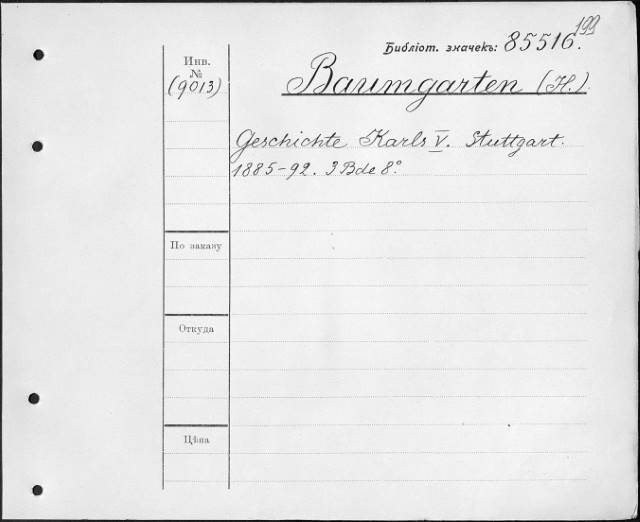 199
Библіот. значекъ: 85516.
Инв.
№
(9013)
Baumgarten (H.)
Geschichte Karls V. Stuttgart.
1885-92. 3 Bde 8°.
По заказу
Откуда
Цѣна